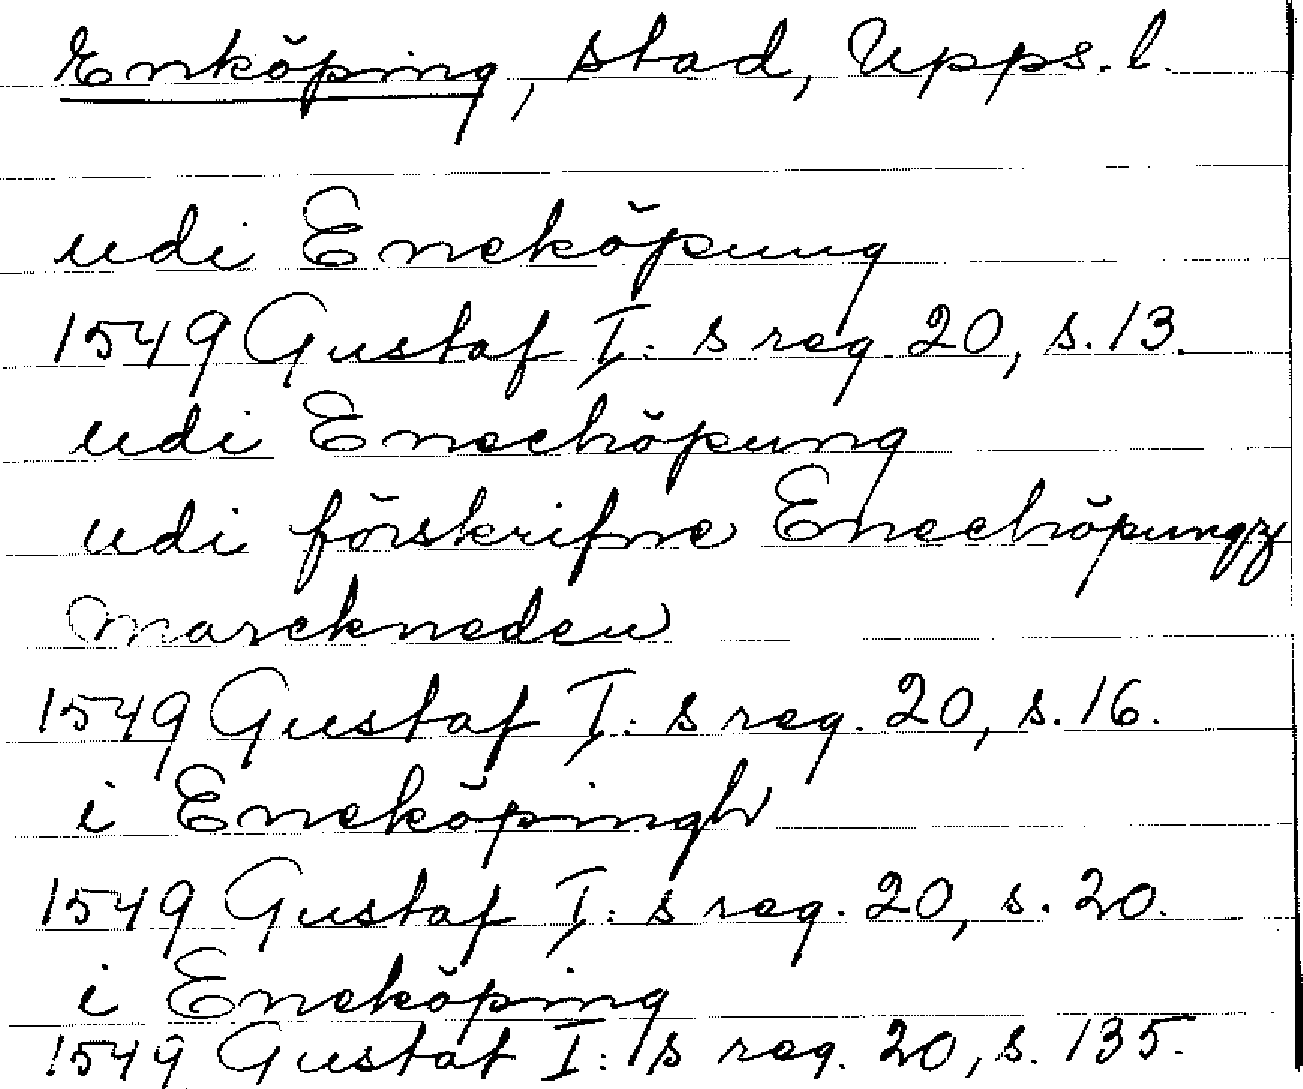 Enköping, stad, Upps. l.
udi Eneköpung
1549 Gustaf I: s reg. 20, s. 13.
udi Enechöpung
udi förskrifne Enechöpungz
marckneden
1549 Gustaf I: s reg. 20, s. 16.
i Eneköpingh
1549 Gustaf I: s reg. 20, s. 20.
i Eneköping
1549 Gustaf I: s reg. 20, s. 135.